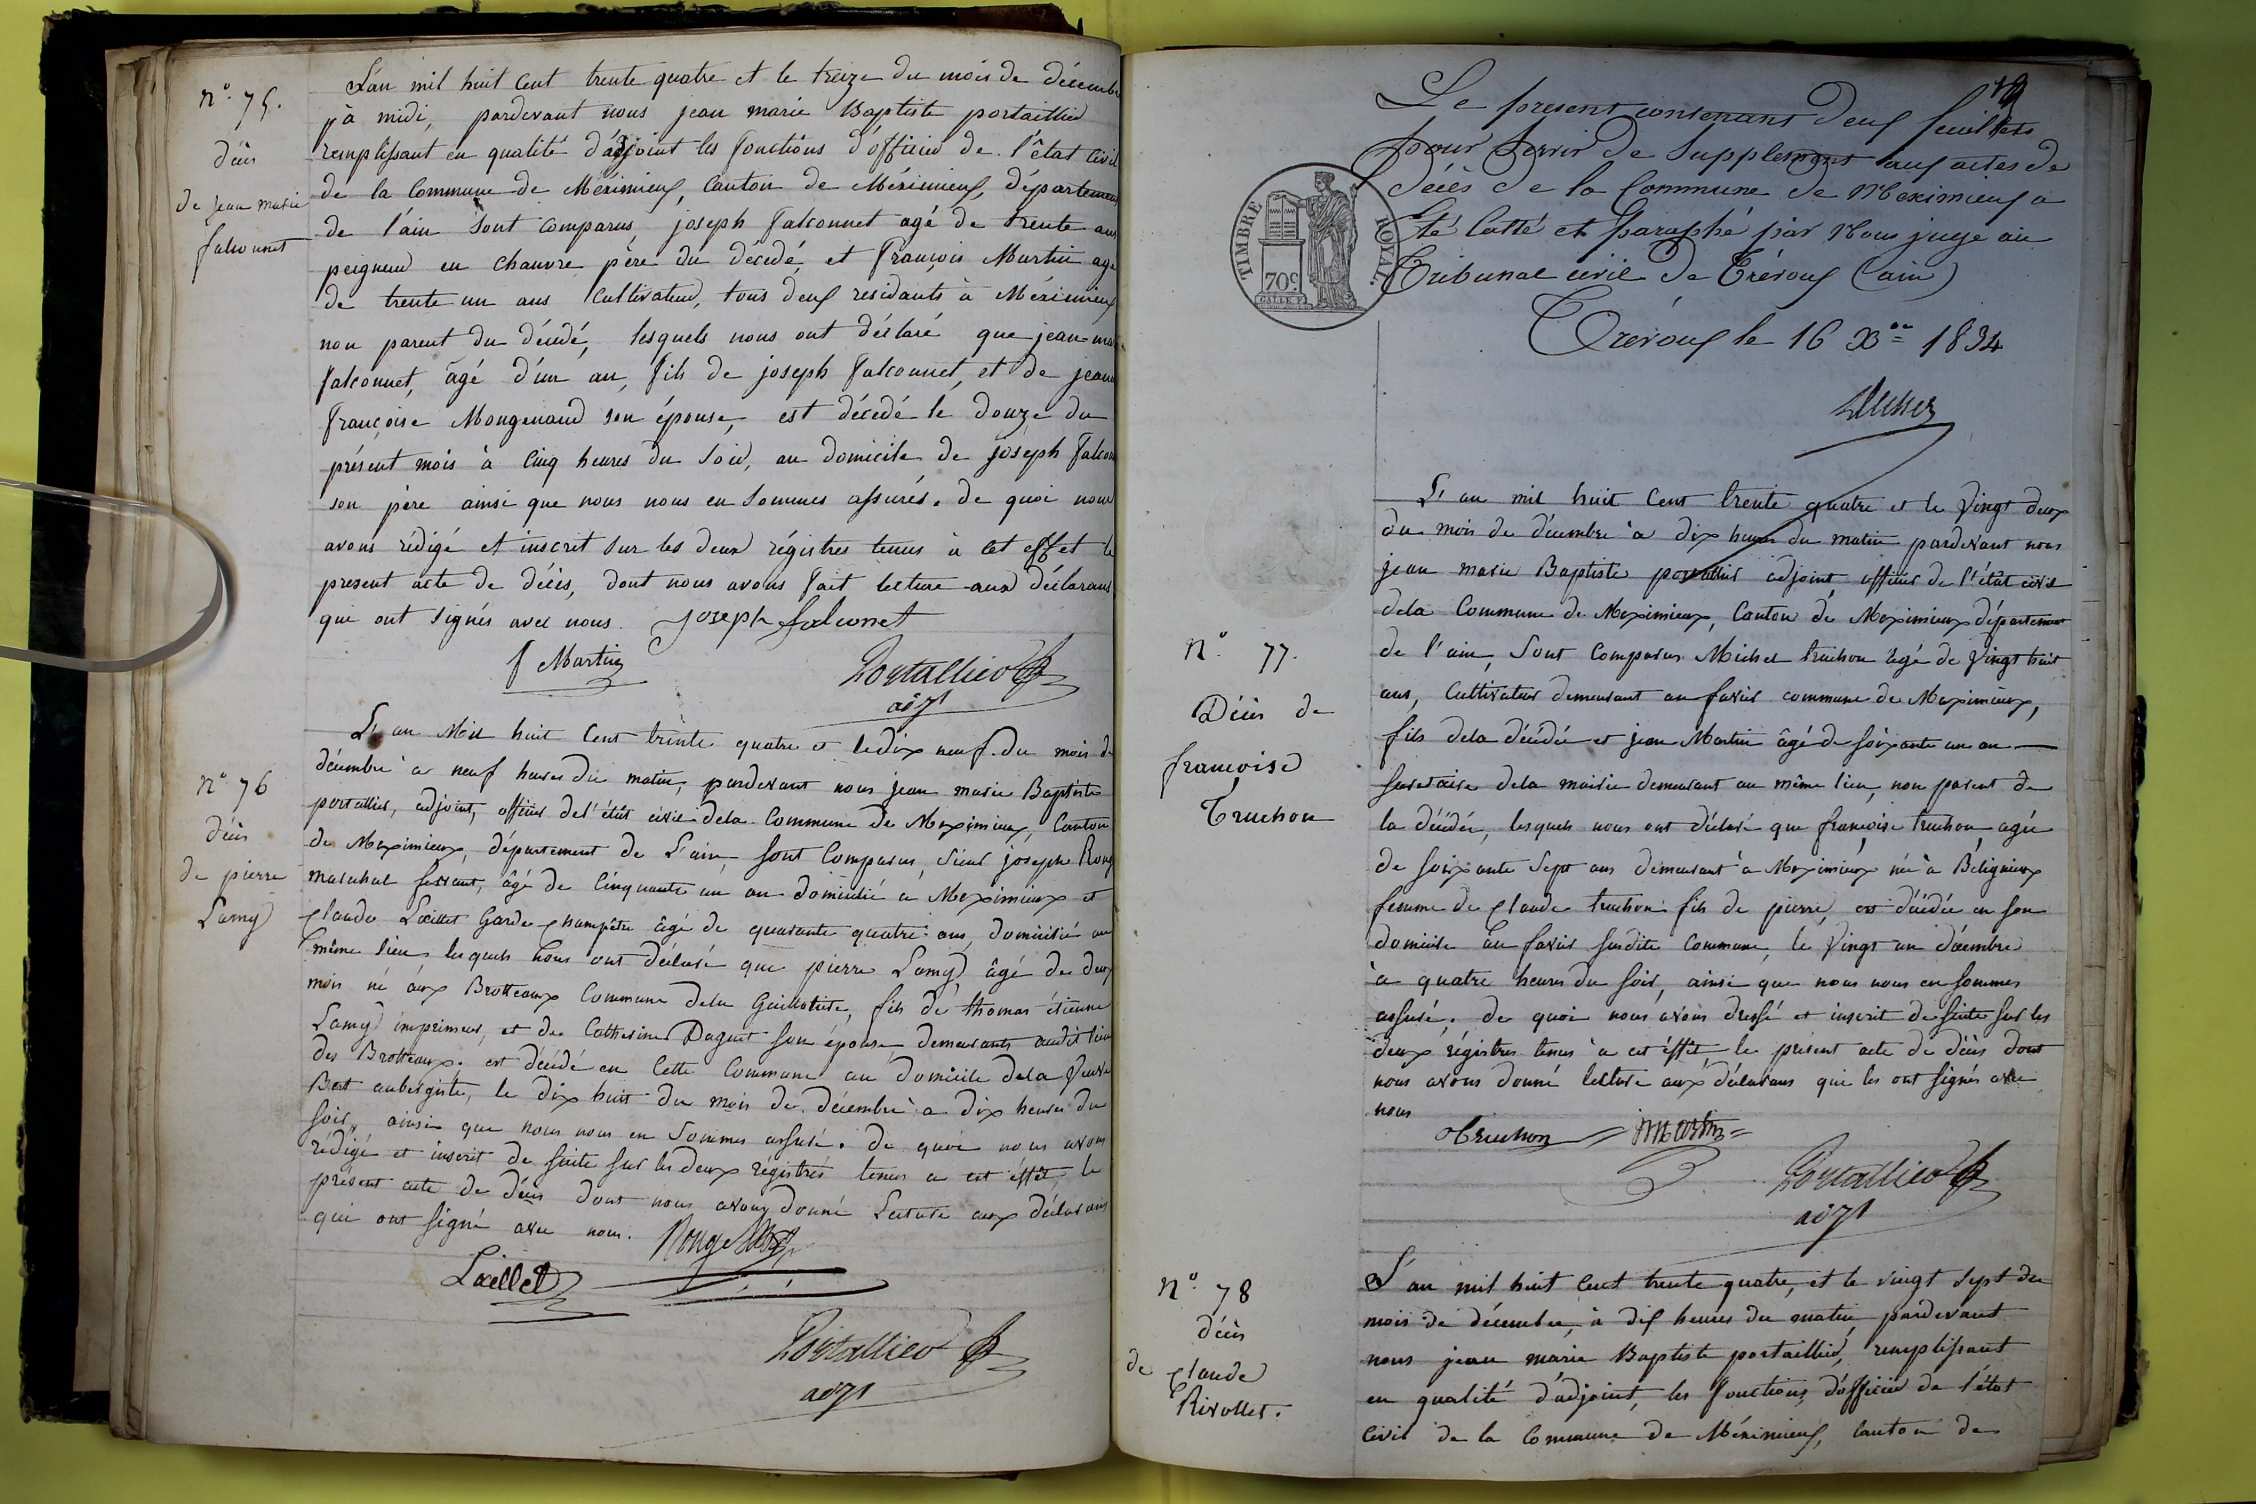 n.º 75.
décès
de jean marie
falconnet
L'an mil huit cent trente quatre et le treize du mois de décembre
à midi, pardevant nous jean marie Baptiste portaillier
remplissant en qualité d'adjoint les fonctions d'officier de l'état civil
de la commune de Méximieux, canton de Méximieux, département
de l'ain sont comparus joseph falconnet agé de trente ans
peigneur en chanvre père du décédé, et françois Martin agé
de trente un ans cultivateur, tous deux residants à Méximieux
non parent du décédé, lesquels nous ont déclaré que jean marie
falconnet, âgé d'un an, fils de joseph falconnet, et de jeanne
françoise Mongenaud son épouse, est décedé le douze du
présent mois à cinq heures du soir, au domicile de joseph falconnet
son père ainsi que nous nous en sommes assurés. de quoi nous
avons rédigé et inscrit sur les deux régistres tenus à cet effet le
present acte de décès, dont nous avons fait lecture aux déclarans
qui ont signés avec nous. joseph falconet
f Martin Portallier
adjt
N.º 76
décès
de pierre
Lamy
L'an Mil huit cent trente quatre et le dix neuf du mois de
décembre à neuf heures du matin, pardevant nous jean marie Baptiste
portallier, adjoint, officier de l'état civil dela commune de Meximieux, Canton
de Meximieux, département de L'ain sont comparus, sieur joseph Rouge
maréchal ferrant, âgé de cinquante un an domicilié a Meximieux et
claude Lœillet Garde champêtre âgé de quarante quatre ans, domicilié au
même lieu lesquels nous ont déclaré que pierre Lamy âgé de deux
mois né aux Brotteaux commune dela Guillotière, fils de thomas étienne
Lamy imprimeur, et de Catherine Daguet son épouse demeurants audit lieu
des Brotteaux. est décédé en cette commune au domicile dela veuve
Bert aubergiste, le dix huit du mois de décembre à dix heures du
soir, ainsi que nous nous en sommes assuré. de quoi nous avons
rédigé et inscrit de suite sur les deux régistres tenus a cet éffet le
présent acte de décès dont nous avons donné Lecture aux déclarans
qui ont signé avec nous. Rouge
Lœillet
Portallier
adjt
19
Le present contenant deux feuillets
pour servir de Supplement aux actes de
décès de la Commune de Meximieux a
Eté Cotté et Paraphé par Nous juge au
Tribunal civil de Trévoux (ain)
Trévoux le 16 Xbre 1834
TIMBRE ROYAL
70c
n.º 77.
Décès de
françoise
Truchon
L'an mil huit cent trente quatre et le vingt deux
du mois de décembre à dix heures du matin pardevant nous
jean marie Baptiste portallier adjoint officier de l'état civil
dela Commune de Meximieux, Canton de Meximieux département
de l'ain, sont comparus Michel truchon âgé de vingt huit
ans, cultivateur demeurant au favier commune de Meximieux,
fils dela décédée et jean Martin âgé de soixante un an
secretaire dela mairie demeurant au même lieu, non parent de
la décédée, lesquels nous ont déclaré que françoise truchon agée
de soixante sept ans demeurant à Meximieux née à Béligneux
femme de claude truchon fils de pierre, est décédée en son
domicile au favier susdite commune, le vingt un décembre
à quatre heures du soir, ainsi que nous nous en sommes
assuré. de quoi nous avons dressé et inscrit de suite sur les
deux régistres tenus à cet éffet le present acte de décès dont
nous avons donné lecture aux déclarans qui les ont signés avec
nous
Truchon Martin
Portallier
adjt
n.º 78
décès
de claude
Rivollet.
L'an mil huit cent trente quatre, et le vingt sept du
mois de décembre, à dix heures du matin pardevant
nous jean marie Baptiste portaillier, remplissant
en qualité d'adjoint, les fonctions d'officier de l'état
civil de la commune de Méximieux, canton de